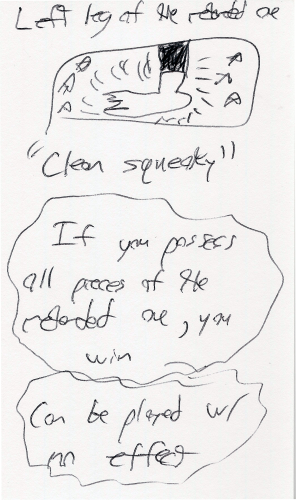 Left leg of the retarded one
"Clean squeaky"
If you possess
all pieces of the
retarded one, you
win
Can be played w/
no effect